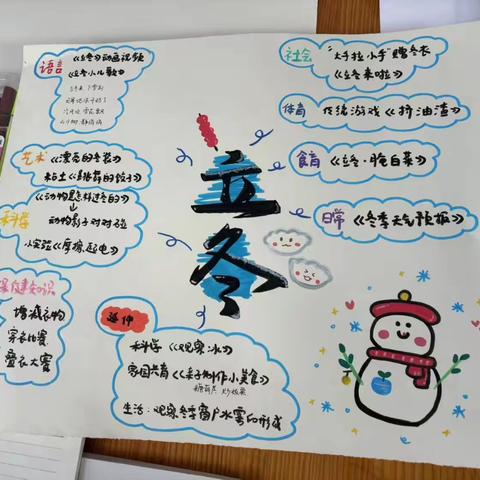 语言
《立冬》动画视频
《立冬小儿歌》
艺术
《漂亮的冬装》
粘土《易萍的饺子》
科学
《动物怎样过冬的》
↓
动物影子对对碰
小实验《摩擦起电》
保健知识
增减衣物
穿衣比赛
叠衣大赛
立冬
社会
"大手拉小手"赠冬衣
《立冬来啦》
体育
传统游戏《挤油渣》
食育
《立冬·腌白菜》
日常
《冬季天气预报》
延伸
科学《观察:冰》
家园共育《亲子制作小美食》
糖葫芦 炒板栗
生活:观察冬季窗户水雾的形成